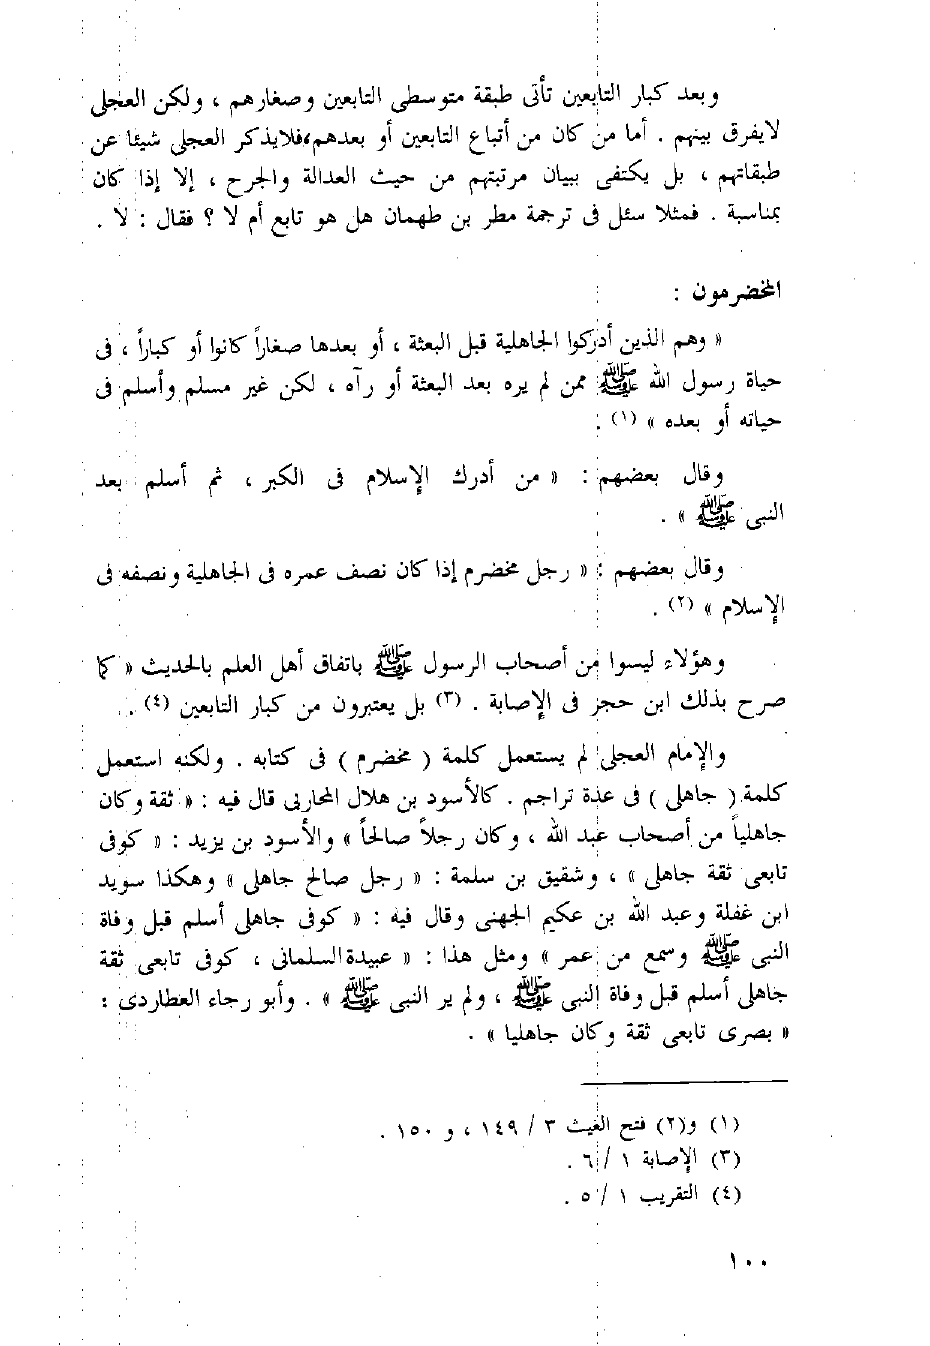 وبعد كبار التابعين تأتى طبقة متوسطى التابعين وصغارهم ، ولكن العجلى
لايفرق بينهم . أما من كان من أتباع التابعين أو بعدهم،فلايذكر العجلى شيئا عن
طبقاتهم ، بل يكتفى ببيان مرتبتهم من حيث العدالة والجرح ، إلا إذا كان
بمناسبة . فمثلا سئل فى ترجمة مطر بن طهمان هل هو تابع أم لا ؟ فقال : لا .
المخضرمون :
« وهم الذين أدركوا الجاهلية قبل البعثة ، أو بعدها صغاراً كانوا أو كباراً ، فى
حياة رسول الله ﷺ ممن لم يره بعد البعثة أو رآه ، لكن غير مسلم وأسلم فى
حياته أو بعده » (١) .
وقال بعضهم : « من أدرك الإسلام فى الكبر ، ثم أسلم بعد
النبى ﷺ » .
وقال بعضهم : « رجل مخضرم إذا كان نصف عمره فى الجاهلية ونصفه فى
الإسلام » (٢) .
وهؤلاء ليسوا من أصحاب الرسول ﷺ باتفاق أهل العلم بالحديث « كما
صرح بذلك ابن حجر فى الإصابة . (٣) بل يعتبرون من كبار التابعين (٤) .
والإمام العجلى لم يستعمل كلمة ( مخضرم ) فى كتابه . ولكنه استعمل
كلمة ( جاهلى ) فى عدة تراجم . كالأسود بن هلال المحاربى قال فيه : « ثقة وكان
جاهلياً من أصحاب عبد الله ، وكان رجلاً صالحاً » والأسود بن يزيد : « كوفى
تابعى ثقة جاهلى » ، وشقيق بن سلمة : « رجل صالح جاهلى » وهكذا سويد
ابن غفلة وعبد الله بن عكيم الجهنى وقال فيه : « كوفى جاهلى أسلم قبل وفاة
النبى ﷺ وسمع من عمر » ومثل هذا : « عبيدة السلمانى ، كوفى تابعى ثقة
جاهلى أسلم قبل وفاة النبى ﷺ ، ولم ير النبى ﷺ » . وأبو رجاء العطاردى :
« بصرى تابعى ثقة وكان جاهليا » .
(١) و(٢) فتح الغيث ٣ / ١٤٩ ، و ١٥٠ .
(٣) الإصابة ١ / ٦ .
(٤) التقريب ١ / ٥ .
١٠٠